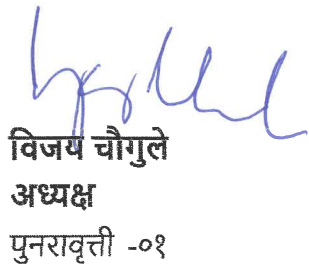 विजय चौगुले
अध्यक्ष
पुनरावृत्ती -०१